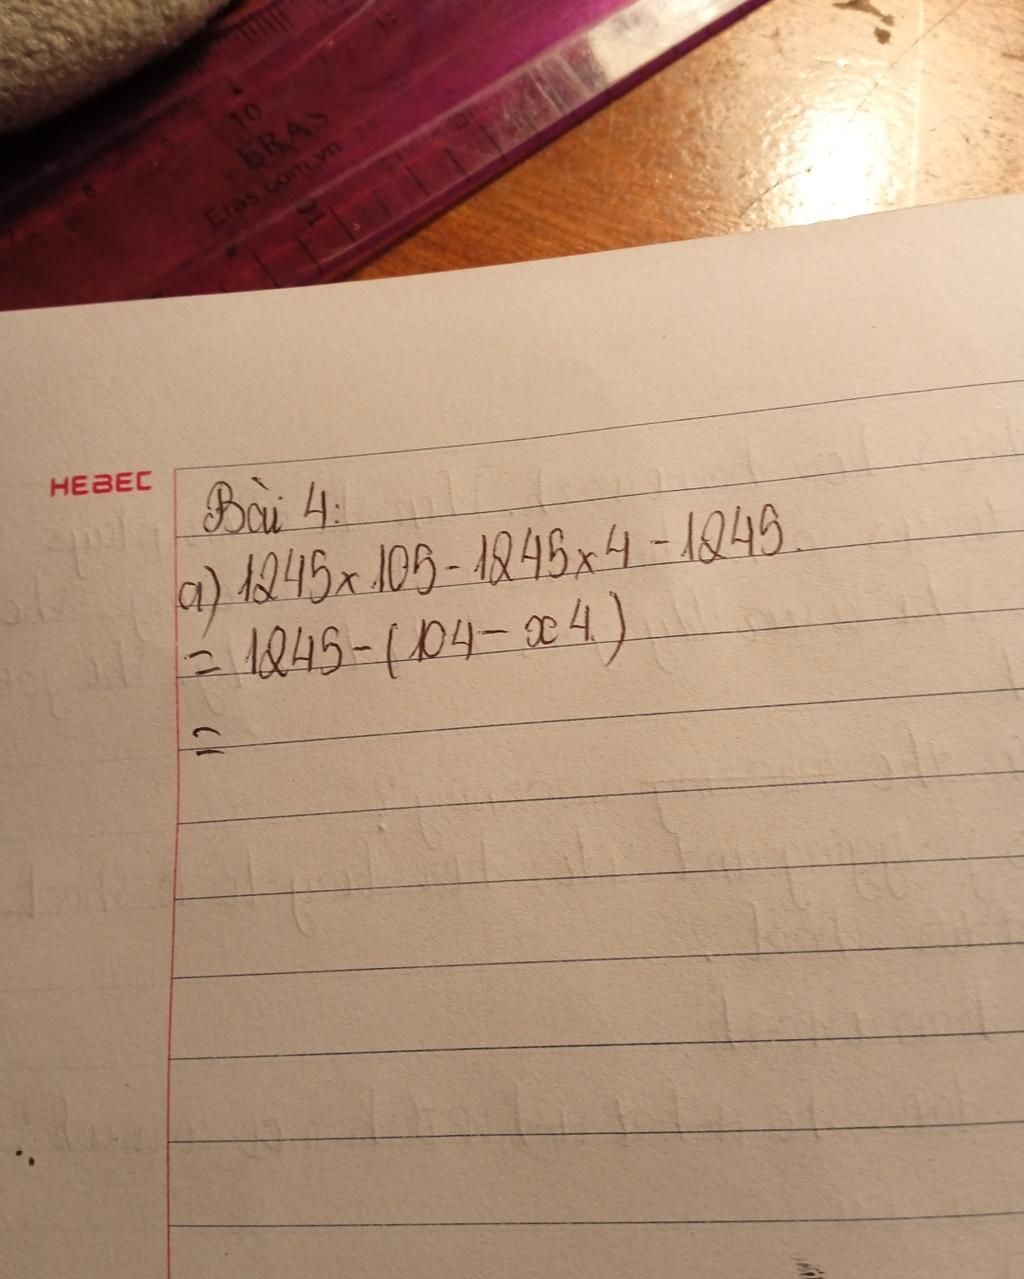 10
ERAS
Eras.com.vn
HEBEC
Bài 4:
a) 1245 x 105 - 1245 x 4 - 1245.
= 1245 - (104 - x 4.)
=